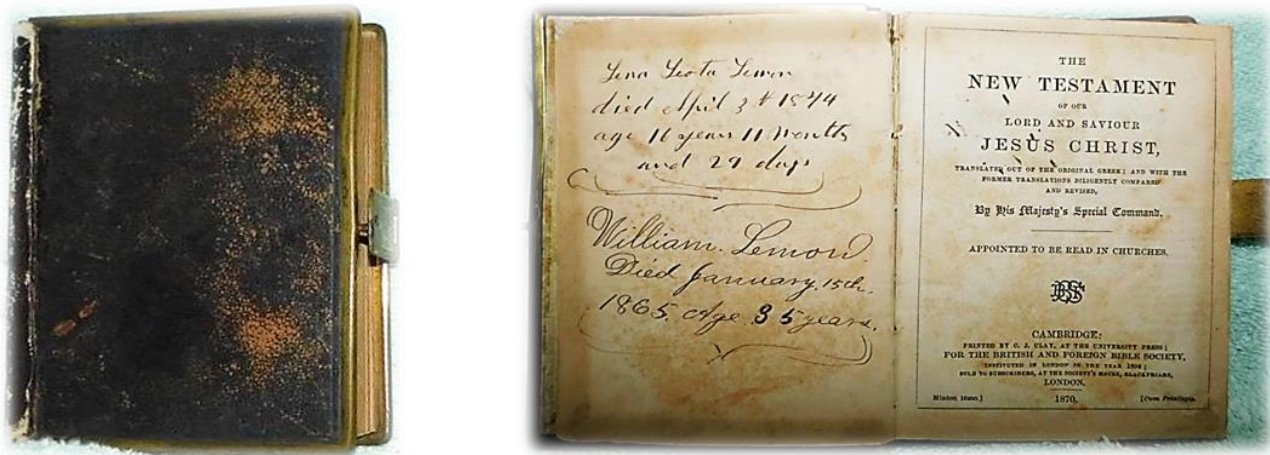 Lena Leota Lemon
died April 3d 1874
age 16 years 11 months
and 29 days
William Lemon
Died January, 15th.
1865. Age 35 years.
THE
NEW TESTAMENT
OF OUR
LORD AND SAVIOUR
JESUS CHRIST,
TRANSLATED OUT OF THE ORIGINAL GREEK; AND WITH THE
FORMER TRANSLATIONS DILIGENTLY COMPARED
AND REVISED,
By His Majesty's Special Command.
APPOINTED TO BE READ IN CHURCHES.
CAMBRIDGE:
PRINTED BY C. J. CLAY, AT THE UNIVERSITY PRESS;
FOR THE BRITISH AND FOREIGN BIBLE SOCIETY,
INSTITUTED IN LONDON IN THE YEAR 1804;
SOLD TO SUBSCRIBERS, AT THE SOCIETY'S HOUSE, BLACKFRIARS,
LONDON.
Minion 16mo.] 1870. [Cum Privilegio.